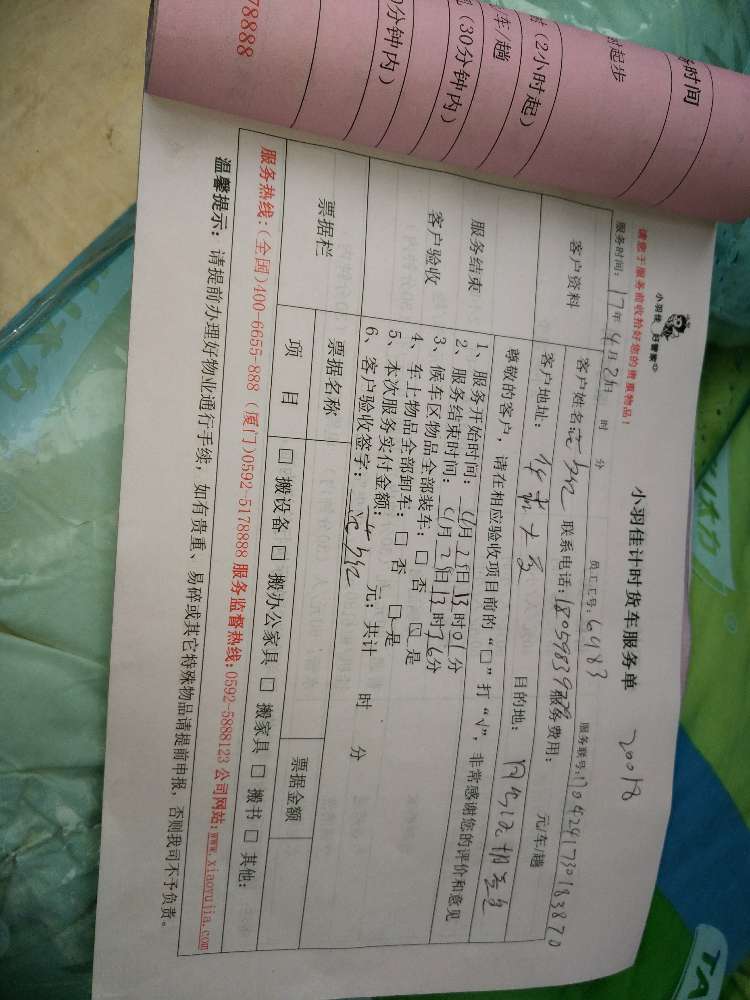 务时间
时起步
时(2小时起)
车/趟
(30分钟内)
0分钟内)
78888
请您于服务前收拾好您的贵重物品!
小羽佳 好管家
小羽佳计时货车服务单
20018
服务时间: 17年4月21日 时 分
员工工号: 6983
服务联号: 1704241730183870
客户资料
客户姓名:
联系电话:
服务费用: 元/车/趟
客户地址:
目的地:
尊敬的客户, 请在相应验收项目前的“□”打“√”, 非常感谢您的评价和意见
服务结束
客户验收
1、服务开始时间: 4月21日13时01分
2、服务结束时间: 4月21日13时36分
3、候车区物品全部装车: □ 否 □ 是
4、车上物品全部卸车: □ 否 □ 是
5、本次服务实付金额: 元; 共计 时 分
6、客户验收签字:
票据栏
票据名称
票据金额
项 目
□ 搬设备 □ 搬办公家具 □ 搬家具 □ 搬书 □ 其他:
服务热线:(全国)400-6655-888 (厦门)0592-5178888 服务监督热线:0592-5888123 公司网站:www.xiaoyujia.com
温馨提示: 请提前办理好物业通行手续, 如有贵重、易碎或其它特殊物品请提前申报, 否则我司不予负责。
TA